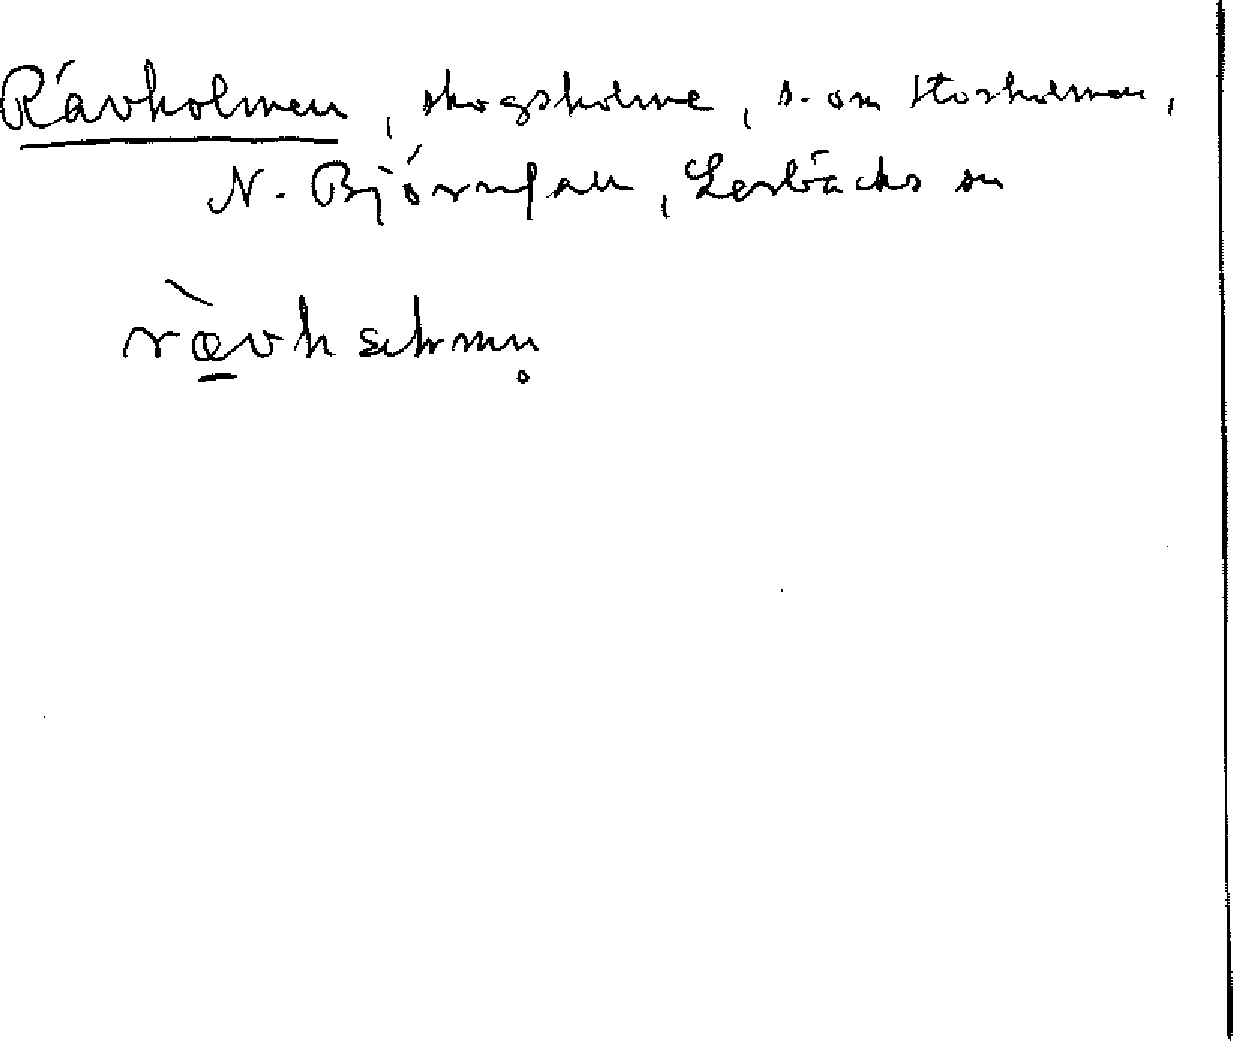 Rävholmen, skogsholme, s. om Storholmen,
N. Björnfall, Lerbäcks sn